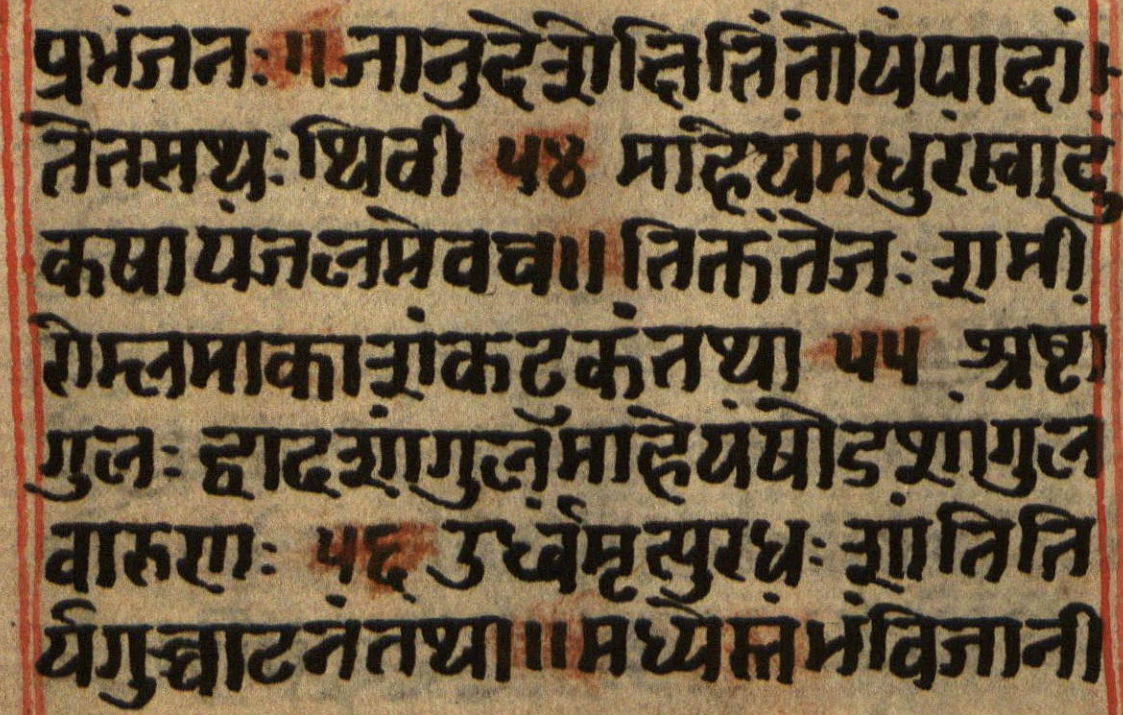 प्रभंजनः॥जानुदेशेक्षितिंतोयंपादां।
तेतसथ्रःथिवी ५४ माहेयंमधुरंस्वादुं
कषायंजलमेवच॥तिक्तंतेजः शमी
रोम्लमाकाशंकटकंतथा ५५ अष्टां
गुलः द्वादशांगुलंमाहेयंषोडशांगुल
वारुणः ५६ उर्ध्वंमृत्युरधः शांतिति
र्यगुच्चाटनंतथा॥मध्येस्तंभंविजानी